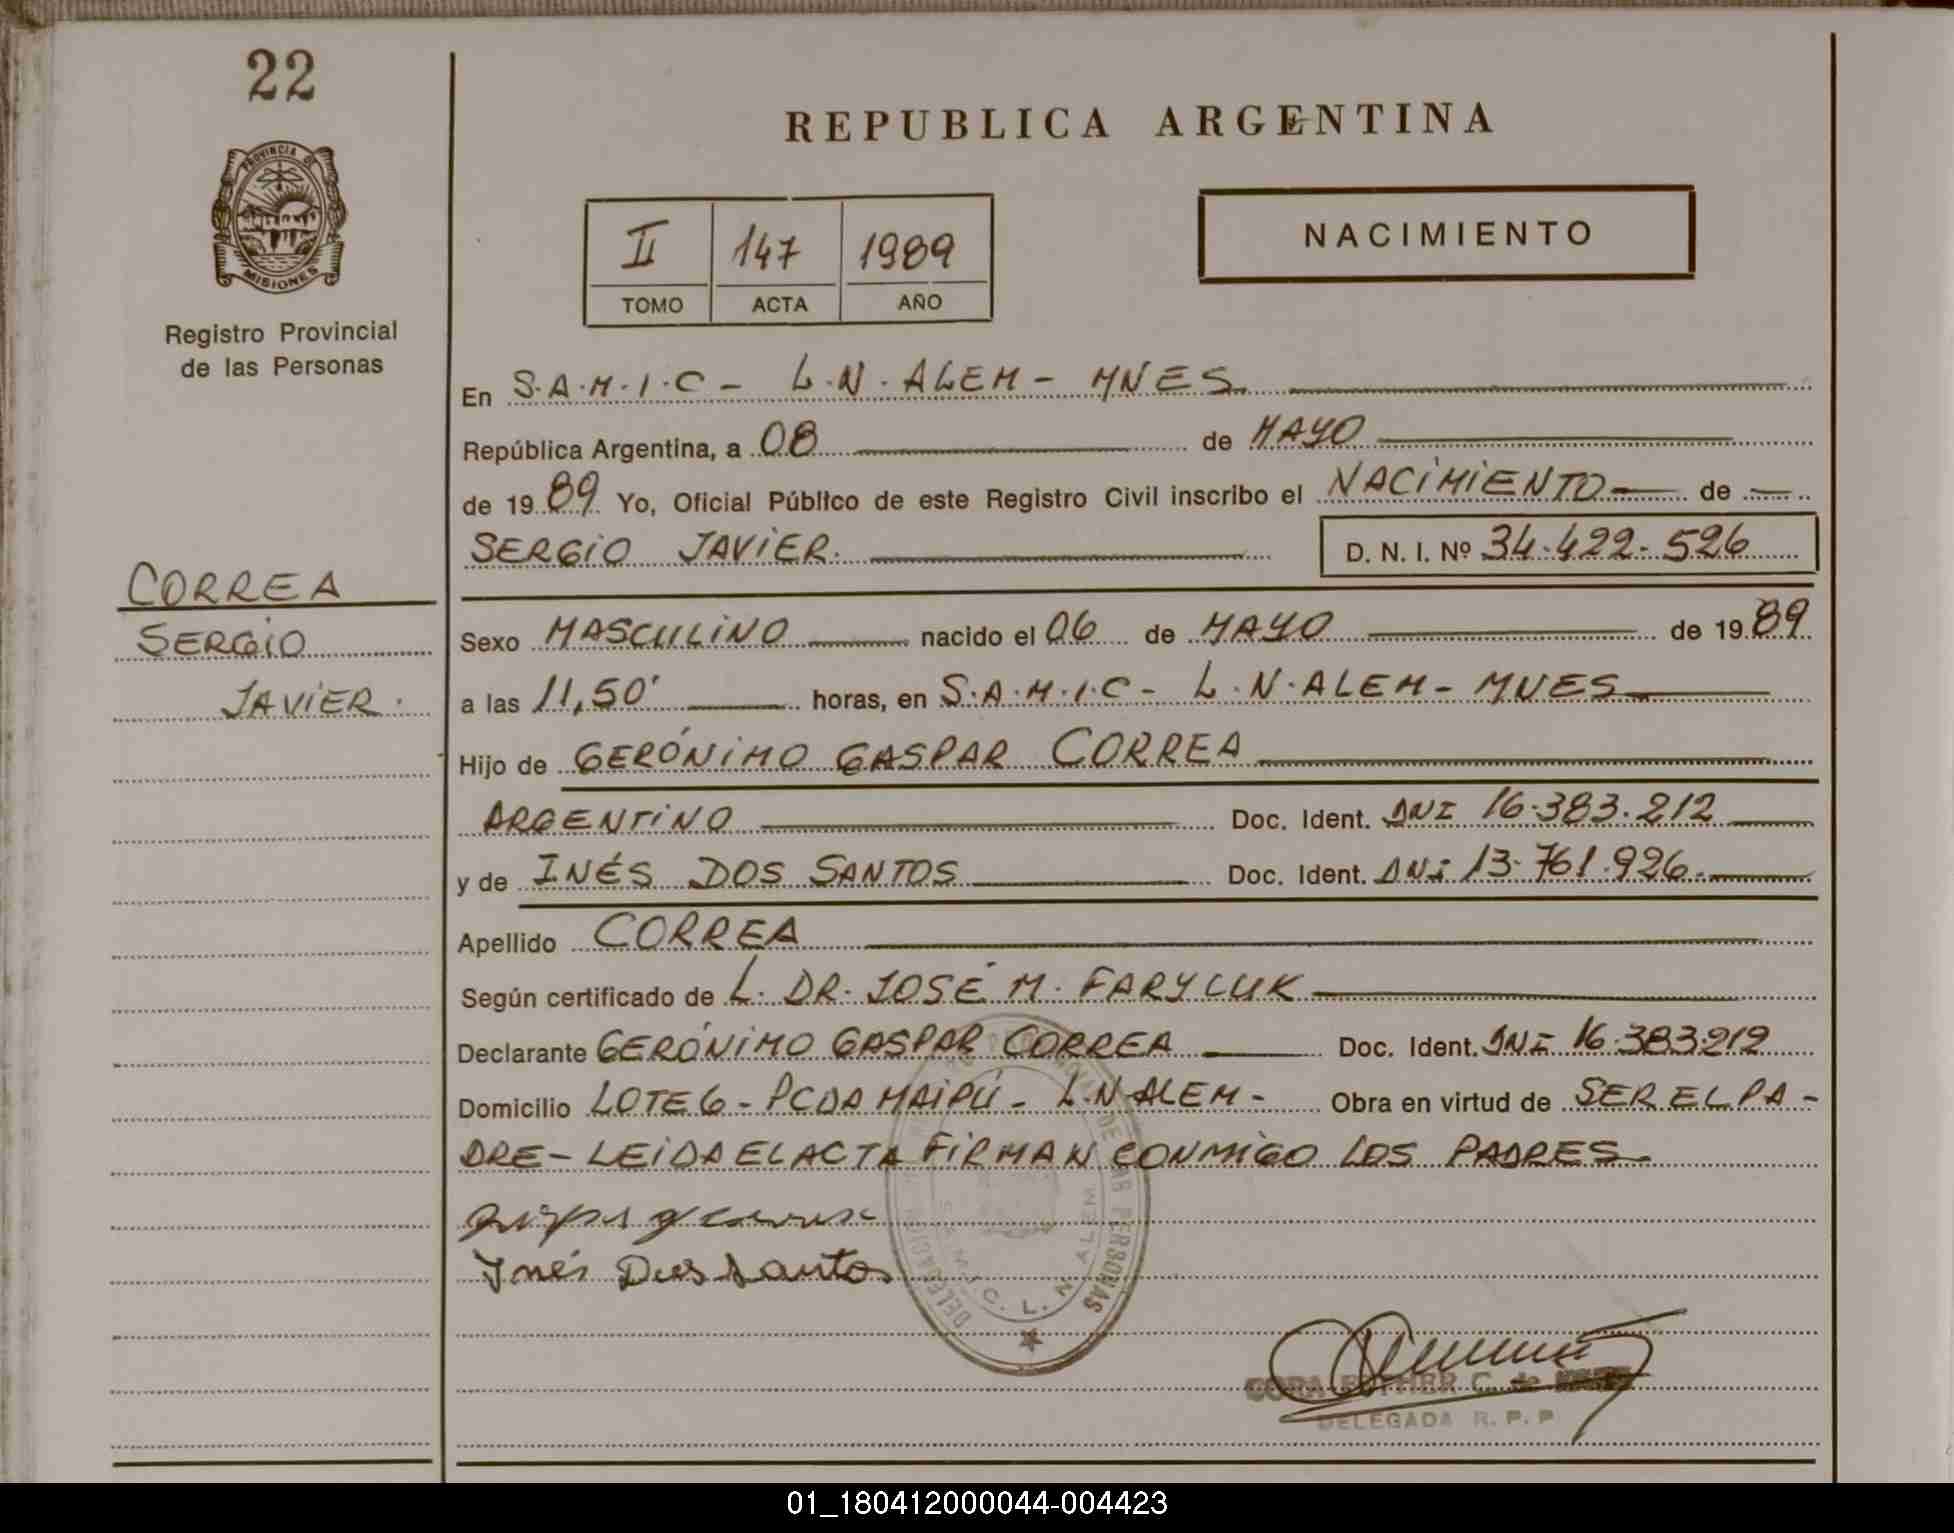 22
REPUBLICA ARGENTINA
PROVINCIA DE
MISIONES
Registro Provincial
de las Personas
II 147 1989
TOMO ACTA AÑO
NACIMIENTO
En S.A.M.I.C - L.N. ALEM - MNES.
República Argentina, a 08 de MAYO
de 1989 Yo, Oficial Público de este Registro Civil inscribo el NACIMIENTO - de -
SERGIO JAVIER.
D. N. I. Nº 34.422.526
CORREA
SERGIO
JAVIER.
Sexo MASCULINO nacido el 06 de MAYO de 1989
a las 11,50' horas, en S.A.M.I.C - L.N. ALEM - MNES
Hijo de GERÓNIMO GASPAR CORREA
ARGENTINO Doc. Ident. DNI 16.383.212
y de INÉS DOS SANTOS Doc. Ident. DNI 13.761.926.
Apellido CORREA
Según certificado de L. DR. JOSÉ M. FARYLUK
Declarante GERÓNIMO GASPAR CORREA Doc. Ident. DNI 16.383.212
Domicilio LOTE 6 - PCDA MAIPÚ - L.N ALEM - Obra en virtud de SER EL PA-
DRE - LEIDA EL ACTA FIRMAN CONMIGO LOS PADRES.
Inés Dos Santos
DELEGACION DE LAS PERSONAS
S.A.M.I.C. L. N. ALEM
CORA ESTHER C. de
DELEGADA R. P. P
01_180412000044-004423